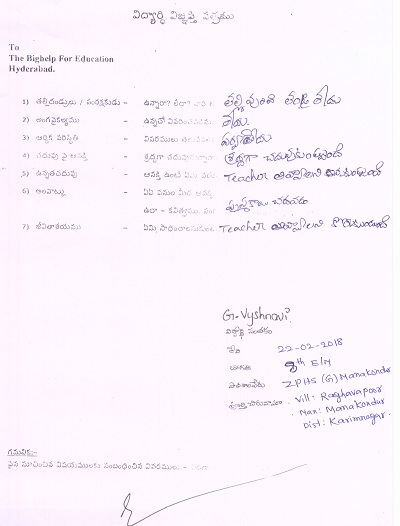 విద్యార్థి విజ్ఞప్తి పత్రము
To
The Bighelp For Education
Hyderabad.
1) తల్లిదండ్రులు / సంరక్షకుడు - ఉన్నారా? లేదా? తల్లి వుంది తండ్రి లేదు
2) అంగవైకల్యము - ఉన్నచో వివరించవలెను లేదు.
3) ఆర్థిక పరిస్థితి - వివరములు
4) చదువు పై ఆసక్తి - శ్రద్ధగా శ్రద్ధగా చదువుకుంటుంది
5) ఉన్నతచదువు - ఆసక్తి ఉంటే ఏమి Teacher అవ్వాలని
6) అలవాట్లు - ఏఏ పనుల మీద ఆసక్తి
ఉదా - కవిత్వము, పుస్తకాలు చదవడం
7) జీవితాశయము - ఏమి Teacher అవ్వాలని
G. Vyshnavi.
విద్యార్థి సంతకం
తేది 22-02-2018
తరగతి 8th E/M
పాఠశాలపేరు ZPHS (G) Manakondur
Vill: Raghavapoor
Man: Manakondur
Dist: Karimnagar.
గమనిక:-
పైన సూచించిన విషయములకు సంబంధించిన వివరములు -